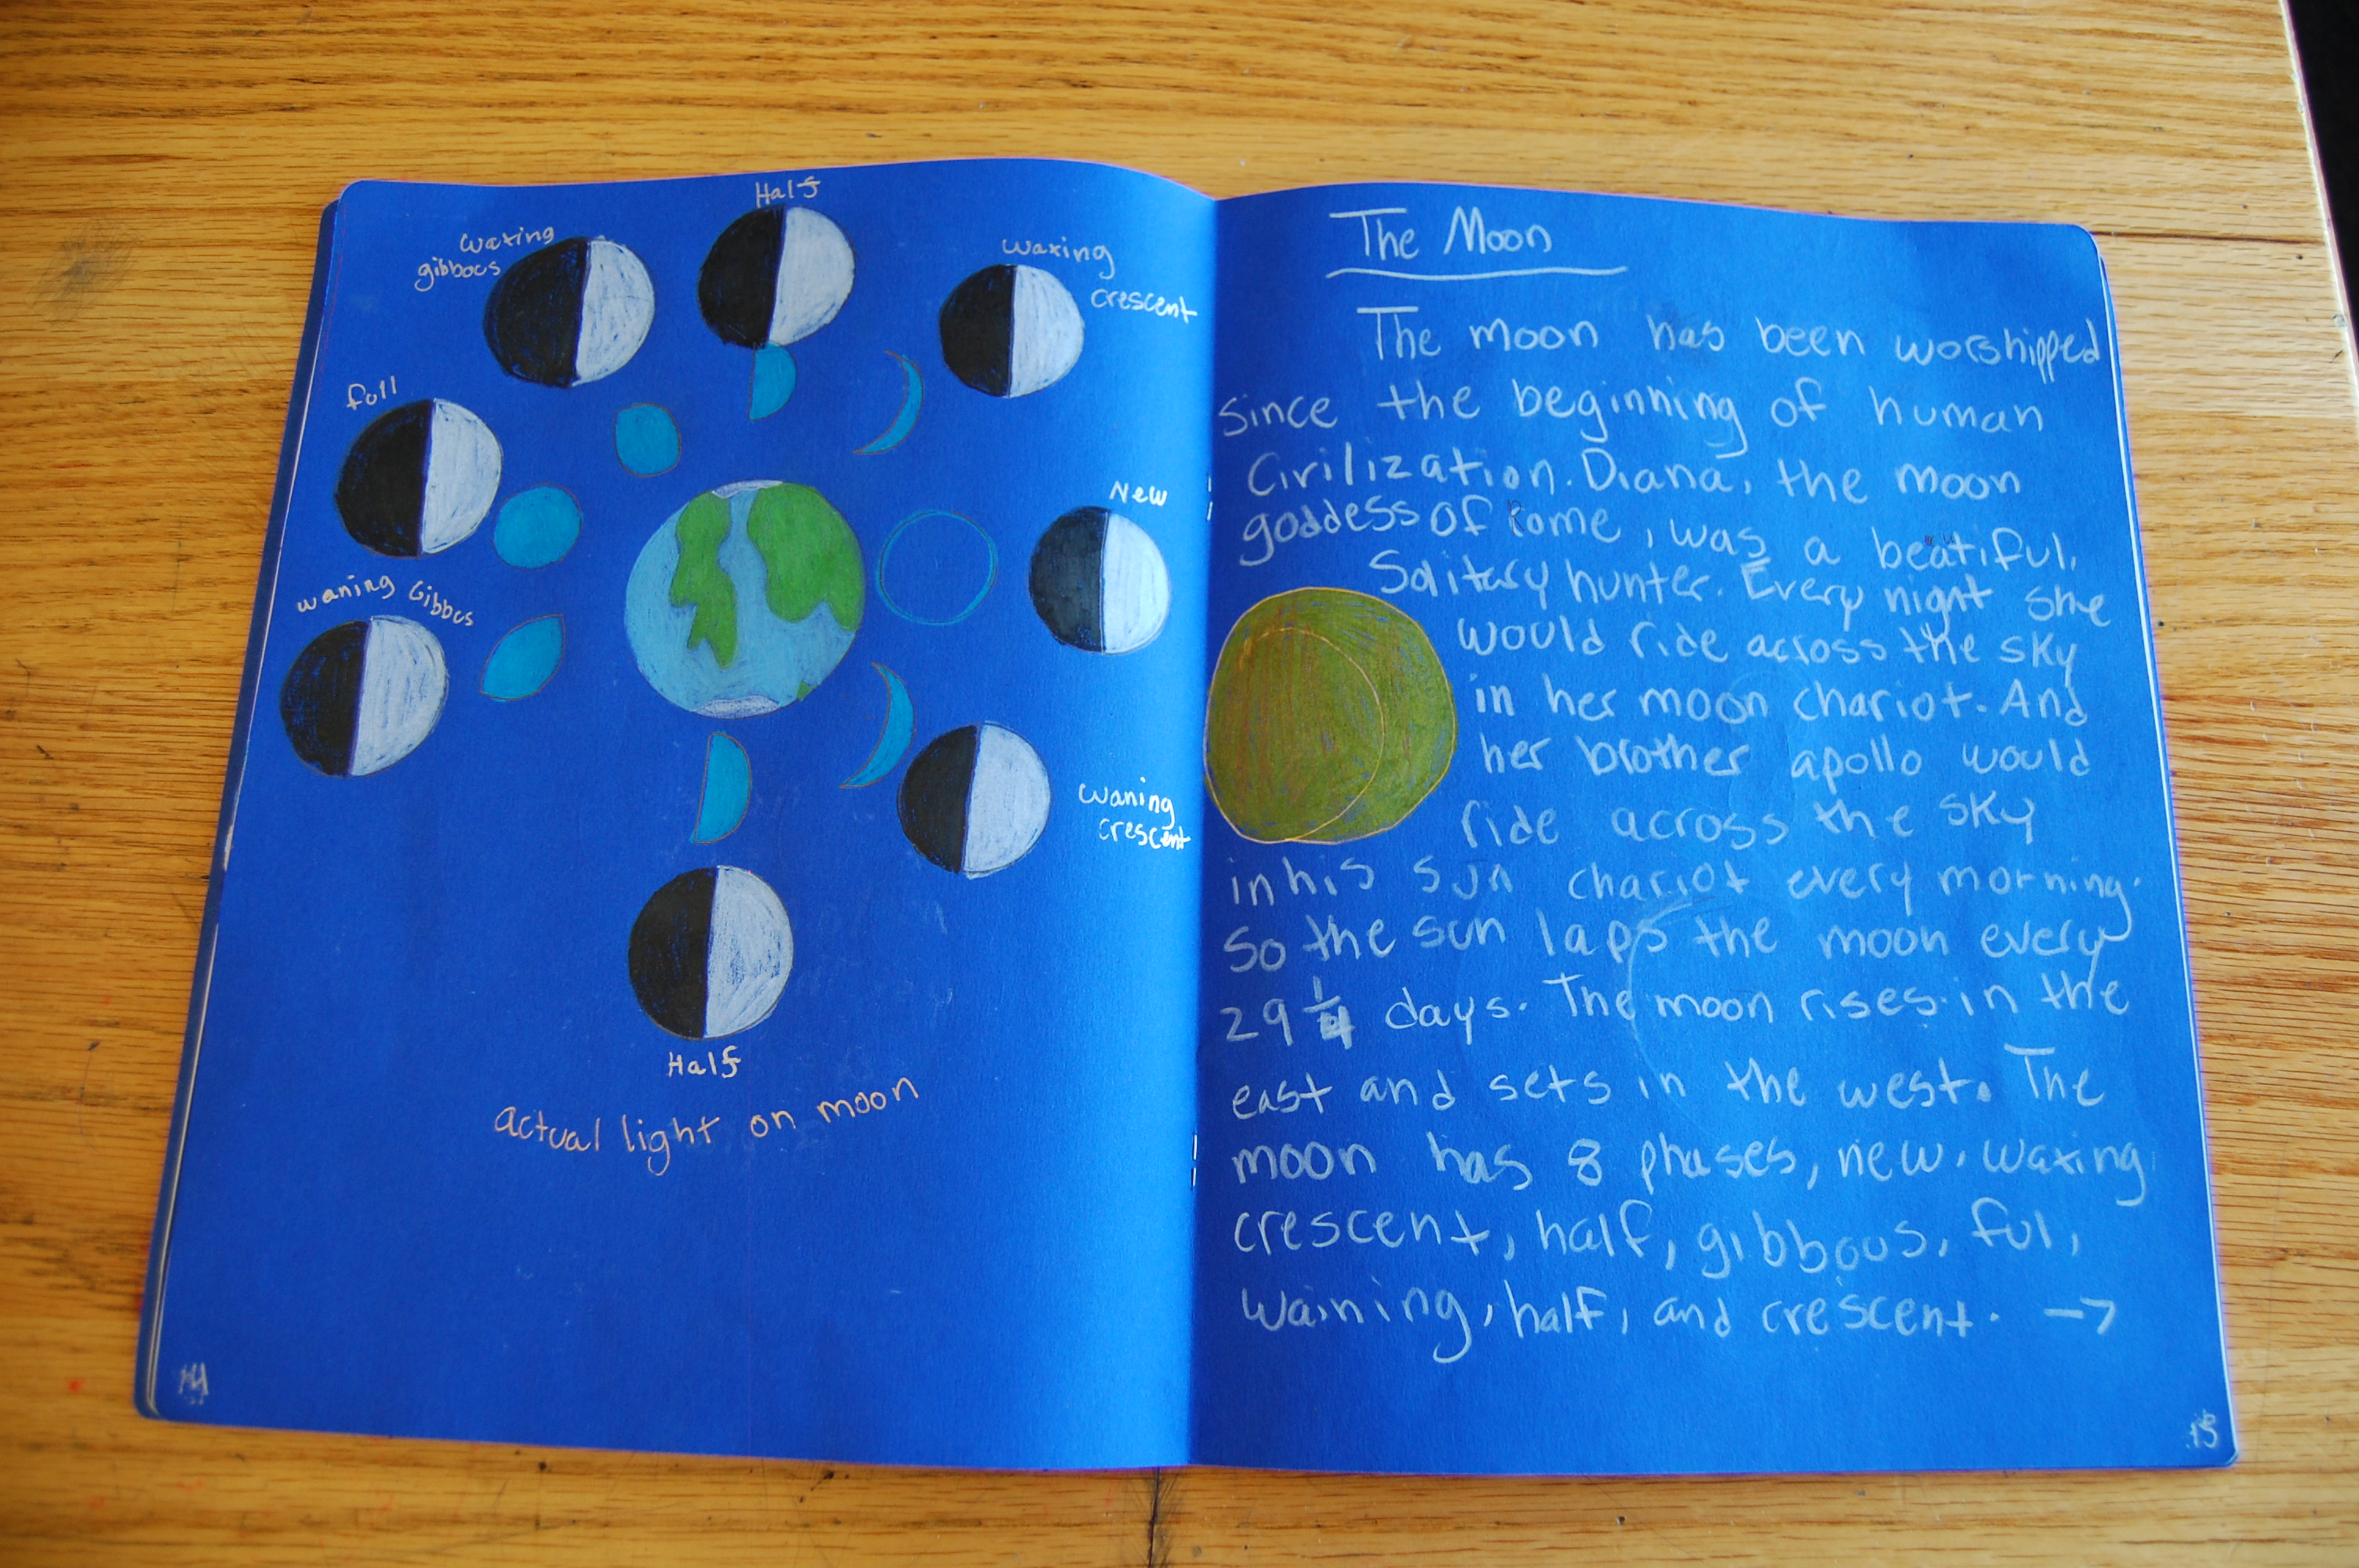 Half
waxing
gibbous
waxing
crescent
full
New
waning Gibbos
waning
crescent
Half
actual light on moon
14
The Moon
The moon has been worshipped
since the beginning of human
Civilization. Diana, the moon
goddess of Rome, was a beatiful,
Solitary hunter. Every night she
would ride across the sky
in her moon chariot. And
her brother apollo would
ride across the sky
in his sun chariot every morning.
So the sun laps the moon every
29 1/4 days. The moon rises in the
east and sets in the west. The
moon has 8 phases, new, waxing
crescent, half, gibbous, ful,
waining, half, and crescent. →
15